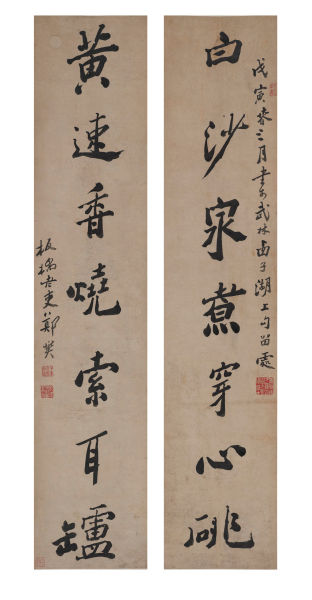 戊寅春三月書于武林西子湖上勾留處
白沙泉煮穿心銚
黄速香燒索耳罏
板橋老叟鄭燮